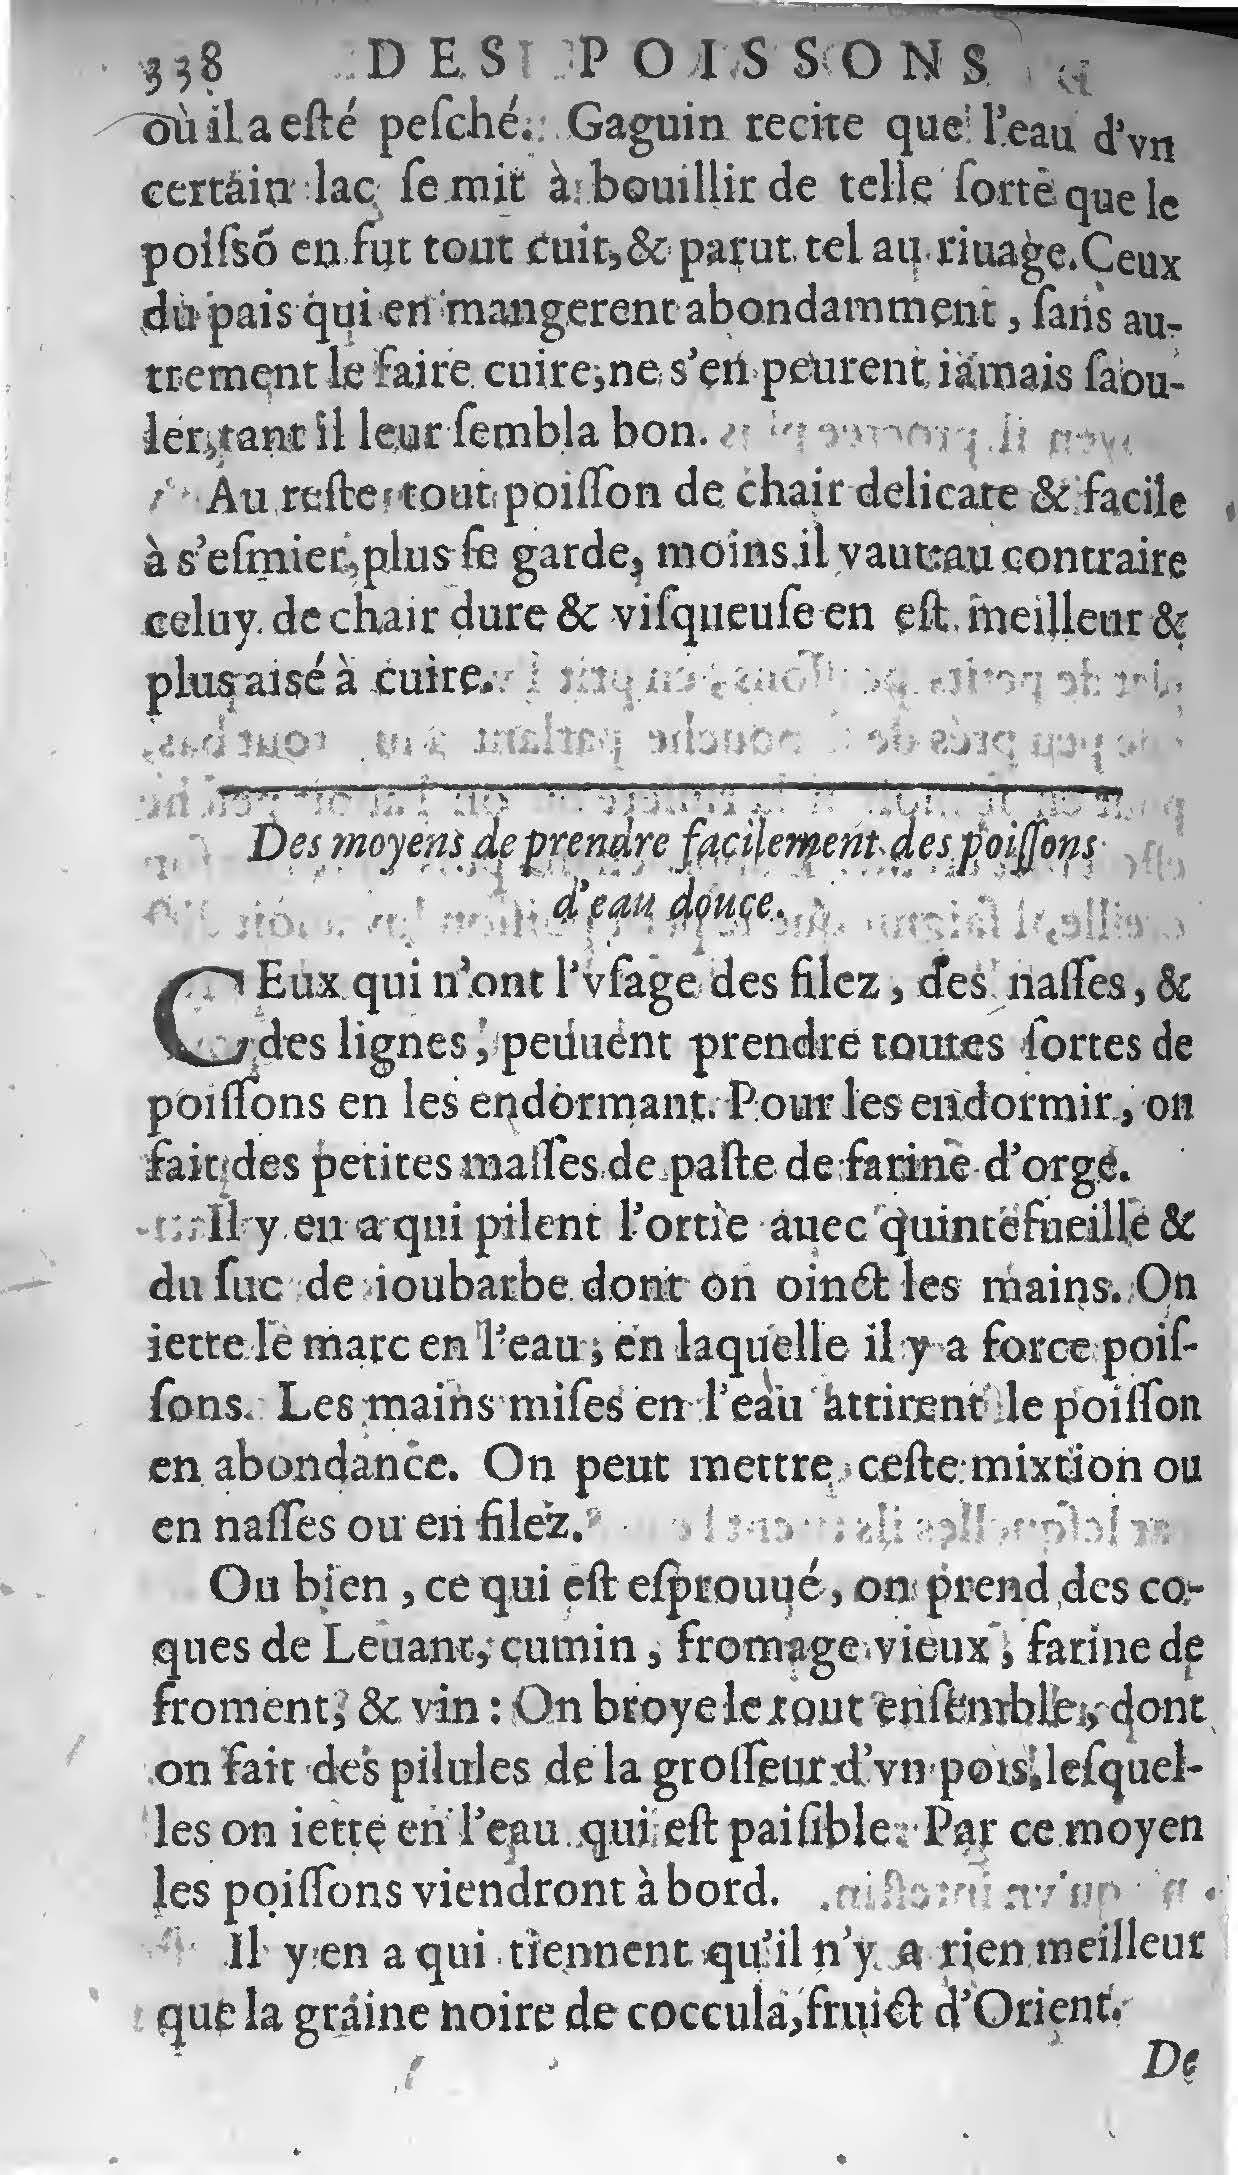 338 DES POISSONS
où il a esté pesché. Gaguin recite que l'eau d'vn
certain lac se mit à bouillir de telle sorte que le
poissõ en fut tout cuit, & parut tel au riuage. Ceux
du pais qui en mangerent abondamment, sans au-
trement le faire cuire, ne s'en peurent iamais saou-
ler, tant il leur sembla bon.
Au reste, tout poisson de chair delicate & facile
à s'esmier, plus se garde, moins il vaut: au contraire
celuy de chair dure & visqueuse en est meilleur &
plus aisé à cuire.
Des moyens de prendre facilement des poissons
d'eau douce.
CEux qui n'ont l'vsage des filez, des nasses, &
des lignes, peuuent prendre toutes sortes de
poissons en les endormant. Pour les endormir, on
fait des petites masses de paste de farine d'orge.
Il y en a qui pilent l'ortie auec quintefueille &
du suc de ioubarbe dont on oinct les mains. On
iette le marc en l'eau, en laquelle il y a force pois-
sons. Les mains mises en l'eau attirent le poisson
en abondance. On peut mettre ceste mixtion ou
en nasses ou en filez.
Ou bien, ce qui est esprouué, on prend des co-
ques de Leuant, cumin, fromage vieux, farine de
froment, & vin: On broye le tout ensemble, dont
on fait des pilules de la grosseur d'vn pois, lesquel-
les on iette en l'eau qui est paisible. Par ce moyen
les poissons viendront à bord.
Il y en a qui tiennent qu'il n'y a rien meilleur
que la graine noire de coccula, fruict d'Orient.
De